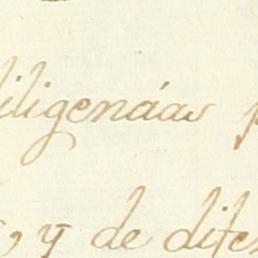 diligencias
, y de dife